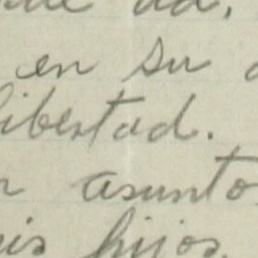 ad.
en su
libertad.
asunto
hijos.